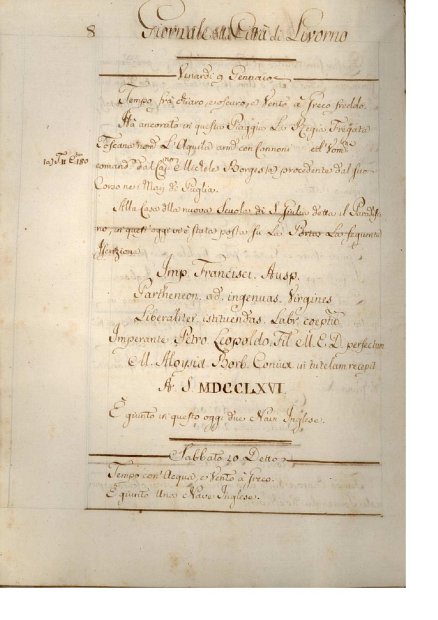 8 Giornale della Città di Livorno
Venardi 9 Gennaio
Tempo frà chiaro, e oscuro, e Vento à greco freddo.
Hà ancorato in questa Spiaggia La Regia Fregata
Toscana nom. L'Aquila arm. con Cannoni ed Vom.
comand. dal Michele Borgesi procedente dal suo
Corso nei Marj di Siciglia.
Alla Casa della nuova Scuola di S. Giulia detta il Paradi-
so, in quest'oggi vi è stata posta su La Porta La seguente
Iscrizione
Imp. Francisci. Ausp.
Partheneon. ad. ingenuas. Virgines
Liberaliter. istituendas. Labr. coeptū
Imperante Petro Leopoldo. Fil. M. E. D. perfectum
M. Aloysia Borb. Coniux in tutelam recepit
A. S. MDCCLXVI
È giunto in questo oggi due Navi Inglese.
Sabbato 10 Detto
Tempo con Acqua, e Vento à greco.
È giunto Una Nave Inglese.